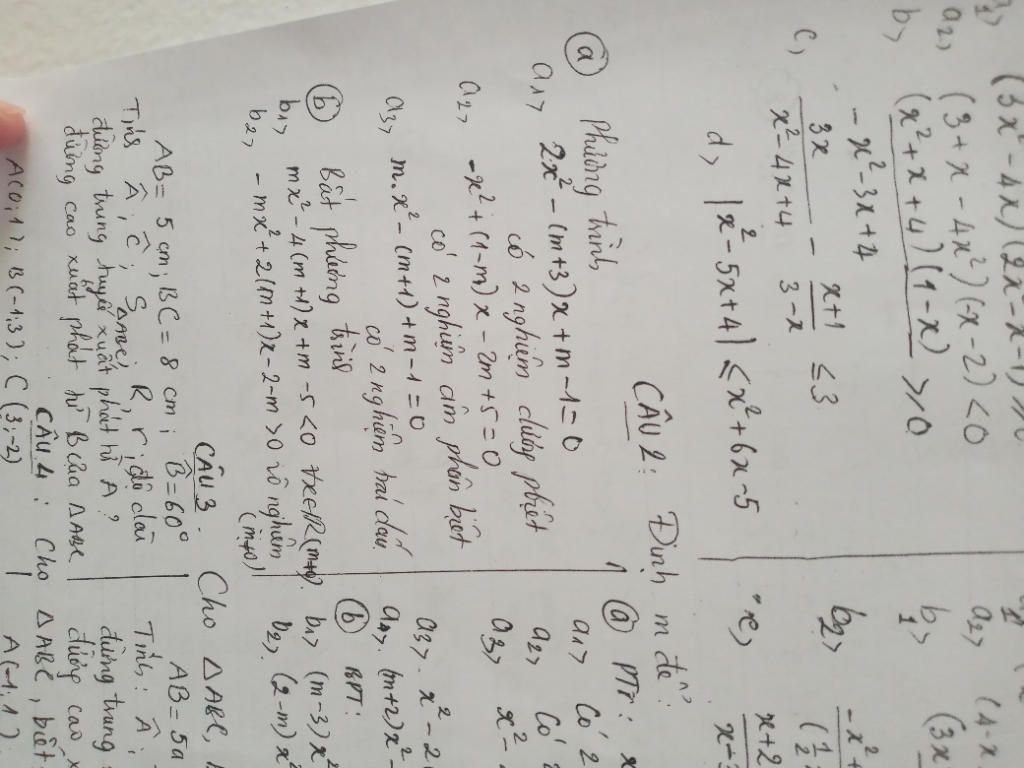 (3x² - 4x)(2x - x - 1) ≥ 0
a2, (3 + x - 4x²)(-x - 2) < 0
b, (x² + x + 4)(1 - x) / -x² - 3x + 4 ≥ 0
c, 3x / x² - 4x + 4 - x + 1 / 3 - x ≤ 3
d, |x² - 5x + 4| ≤ x² + 6x - 5
CÂU 2: Định m để:
ⓐ Phương trình
a1, 2x² - (m+3)x + m - 1 = 0
có 2 nghiệm dương pbiệt
a2, -x² + (1-m)x - 2m + 5 = 0
có 2 nghiệm âm phân biệt
a3, m.x² - (m+1) + m - 1 = 0
có 2 nghiệm trái dấu
ⓑ Bất phương trình
b1, mx² - 4(m+1)x + m - 5 < 0 ∀x∈R (m≠0)
b2, -mx² + 2(m+1)x - 2 - m > 0 vô nghiệm
(m≠0)
CÂU 3. Cho △ABC,
AB = 5 cm; BC = 8 cm; B̂ = 60°
Tính Â; Ĉ; S△ABC; R, r; độ dài
đường trung tuyến xuất phát từ A?
đường cao xuất phát từ B của △ABC
CÂU 4: Cho △ABC, biết
A(0;1); B(-1;3); C(3;-2)
a2, (4-x
b1, (3x
b2, -x² +
(1/2
c, x+2
x-3
ⓐ PTr: x
a1, Có 2
a2, Có
a3, x² -
a3, x² - 2
(m+2)x² -
ⓑ BPT:
b1, (m-3)x²
b2, (2-m)x²
AB = 5a
Tính: Â;
đường trung
đường cao x
A(-1;1)